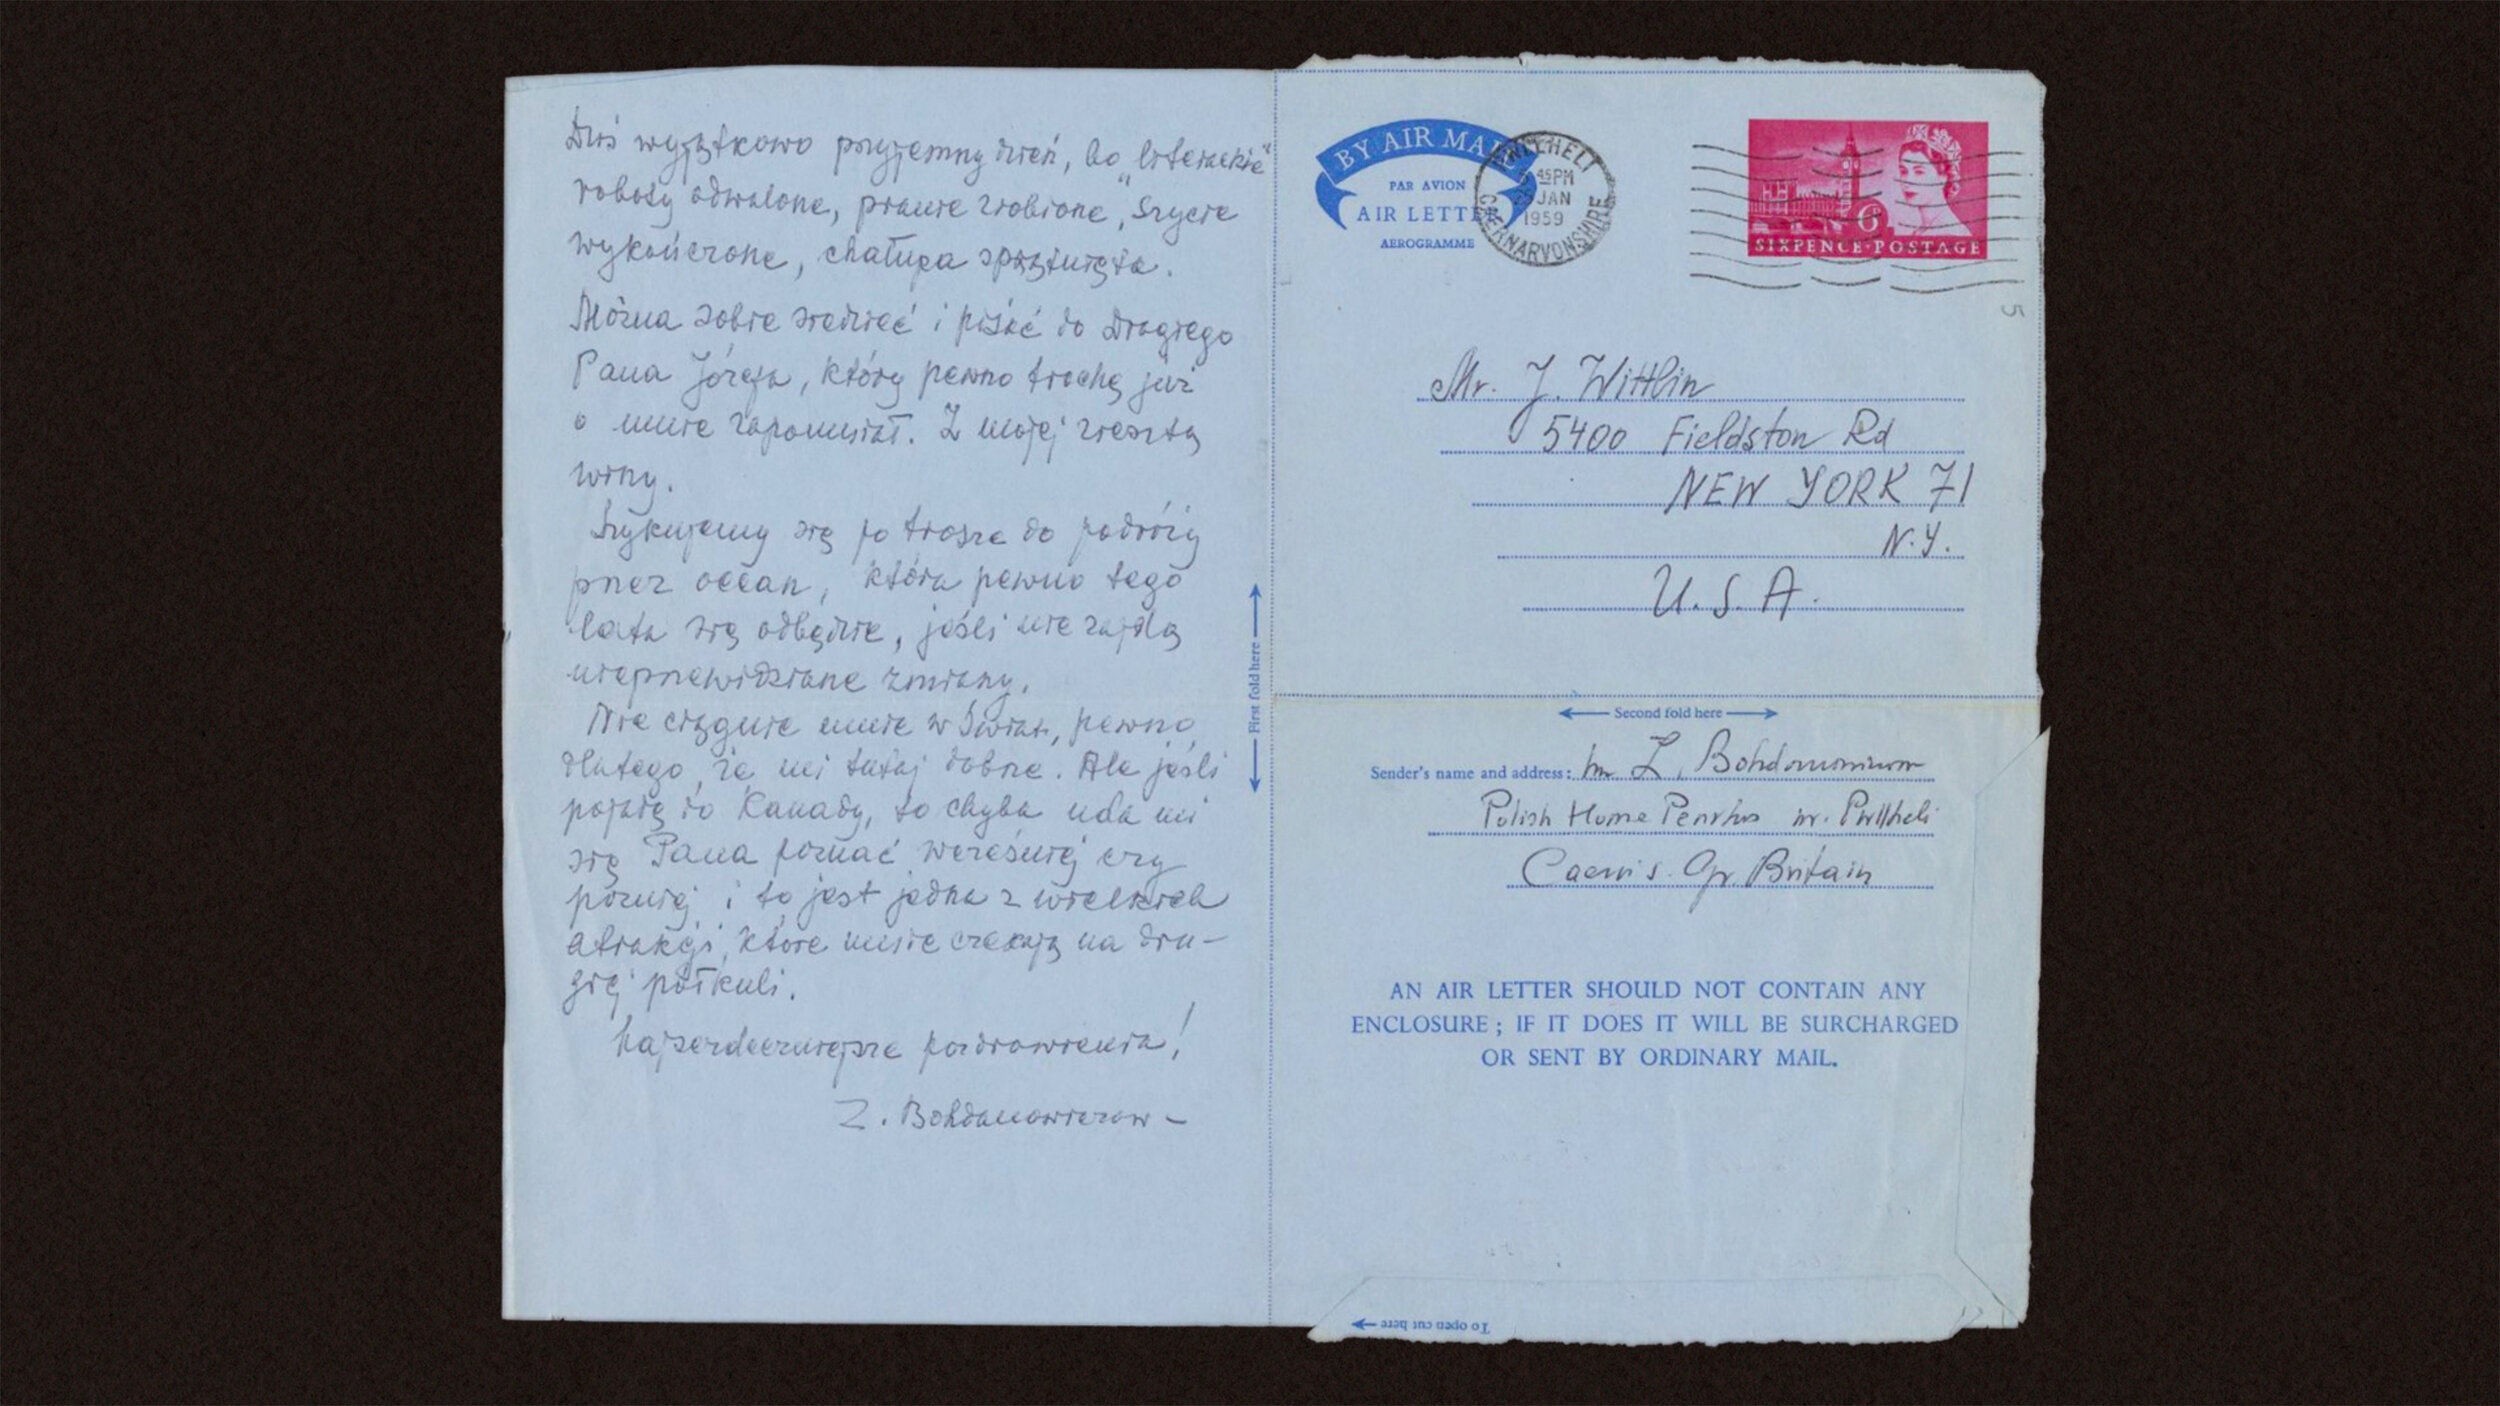 Dziś wyjątkowo przyjemny dzień, bo „literackie"
roboty odwalone, pranie zrobione, szycie
wykończone, chałupa sprzątnięta.
Można sobie siedzieć i pisać do Drogiego
Pana Józefa, który pewno trochę już
o mnie zapomniał. Z mojej zresztą
winy.
Szykujemy się po trosze do podróży
przez ocean, która pewno tego
lata się odbędzie, jeśli nie zajdą
nieprzewidziane zmiany.
Nie ciągnie mnie w świat, pewno
dlatego, że mi tutaj dobrze. Ale jeśli
pojadę do Kanady, to chyba uda mi
się Pana poznać wcześniej czy
później i to jest jedna z wielkich
atrakcji, które mnie czekają na dru-
giej półkuli.
Najserdeczniejsze pozdrowienia!
Z. Bohdanowiczow-
BY AIR MAIL
PAR AVION
AIR LETTER
AEROGRAMME
PWLLHELI
45PM
JAN
1959
CAERNARVONSHIRE
6
SIXPENCE·POSTAGE
5
Mr. J. Wittlin
5400 Fieldston Rd
NEW YORK 71
N.Y.
U.S.A.
First fold here
Second fold here
Sender's name and address: Z. Bohdanowiczow
Polish Home Penrhos nr. Pwllheli
Gr. Britain
AN AIR LETTER SHOULD NOT CONTAIN ANY
ENCLOSURE; IF IT DOES IT WILL BE SURCHARGED
OR SENT BY ORDINARY MAIL.
To open cut here